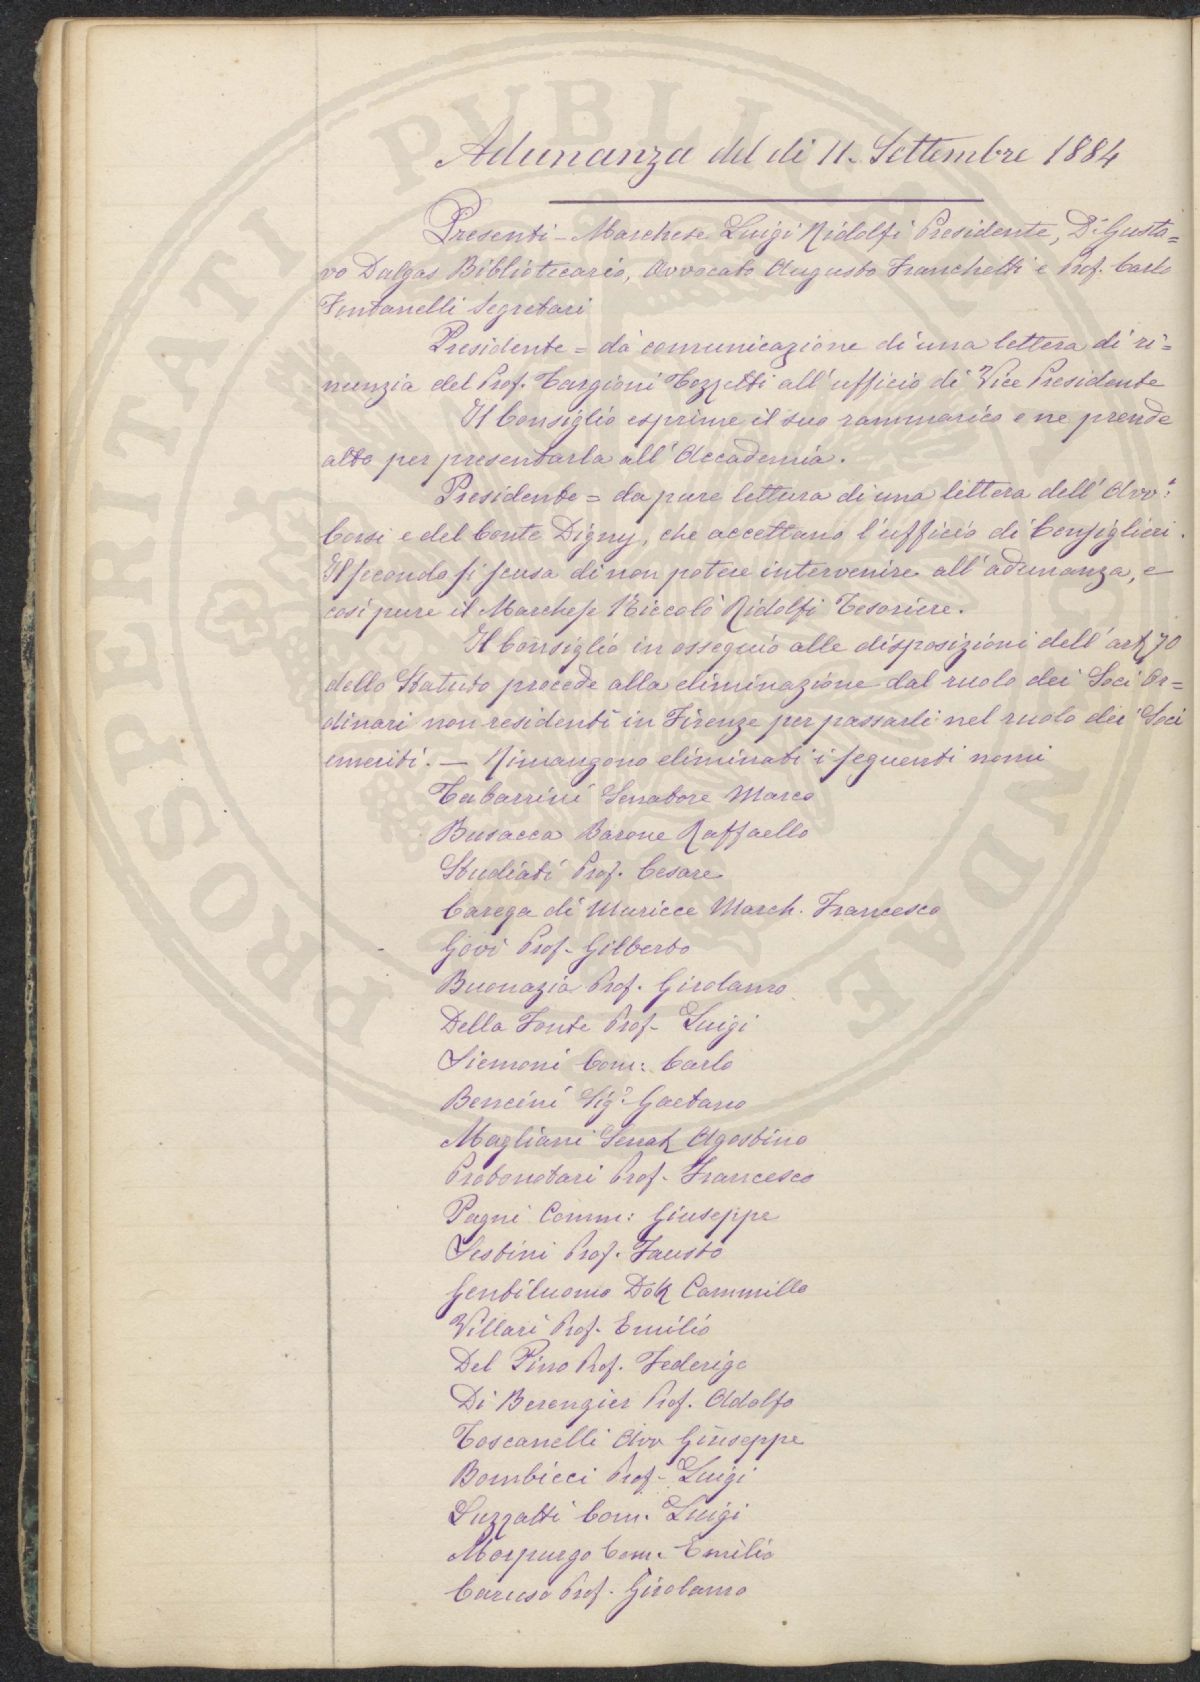 Adunanza del dì 11. Settembre 1884
Presenti – Marchese Luigi Ridolfi Presidente, Dr Gusta=
vo Dalgas Bibliotecario, Avvocato Augusto Franchetti e Prof. Carlo
Fontanelli Segretari
Presidente = dà comunicazione di una lettera di ri=
nunzia del Prof. Targioni Tozzetti all'ufficio di Vice Presidente
Il Consiglio esprime il suo rammarico e ne prende
atto per presentarla all'Accademia.
Presidente = da pure lettura di una lettera dell'Avvo:
Corsi e del Conte Digny, che accettano l'ufficio di Consiglieri.
Il secondo si scusa di non potere intervenire all'adunanza, e
così pure il Marchese Niccolò Ridolfi Tesoriere.
Il Consiglio in ossequio alle disposizioni dell'art 70
dello Statuto procede alla eliminazione dal ruolo dei Soci Or=
dinari non residenti in Firenze per passarli nel ruolo dei Soci
emeriti. — Rimangono eliminati i seguenti nomi
Tabarrini Senatore Marco
Busacca Barone Raffaello
Studiati Prof. Cesare
Carega di Muricce March. Francesco
Govi Prof. Gilberto
Buonazia Prof. Girolamo
Della Fonte Prof. Luigi
Siemoni Com: Carlo
Bencini Sigr Gaetano
Magliani Senat Agostino
Protonotari Prof. Francesco
Pagni Comm: Giuseppe
Sestini Prof. Fausto
Gentiluomo Dott Cammillo
Villari Prof. Emilio
Del Pino Prof. Federigo
Di Berengier Prof. Adolfo
Toscanelli Avv Giuseppe
Bombicci Prof. Luigi
Luzzatti Com. Luigi
Morpurgo Com. Emilio
Caruso Prof. Girolamo
PROSPERITATI PUBLICAE AUGENDAE